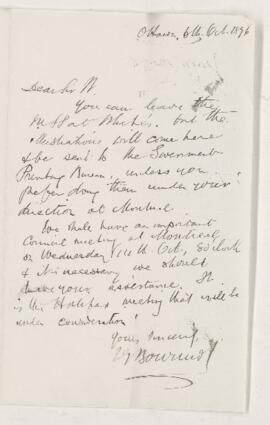 Ottawa, 6th Oct. 1896
Dear Sir W.
You can leave the
M.S. at White's. but the
illustrations will come here
& be sent to the Government
Printing Bureau, unless you
prefer doing them under your
direction at Montreal.
We shall have an important
Council meeting at Montreal
on Wednesday, 14th Oct, 8 o'clock
& it is necessary we should
have your assistance. It
is the Halifax meeting that will be
under consideration!
Yours sincerely,
Bourinot